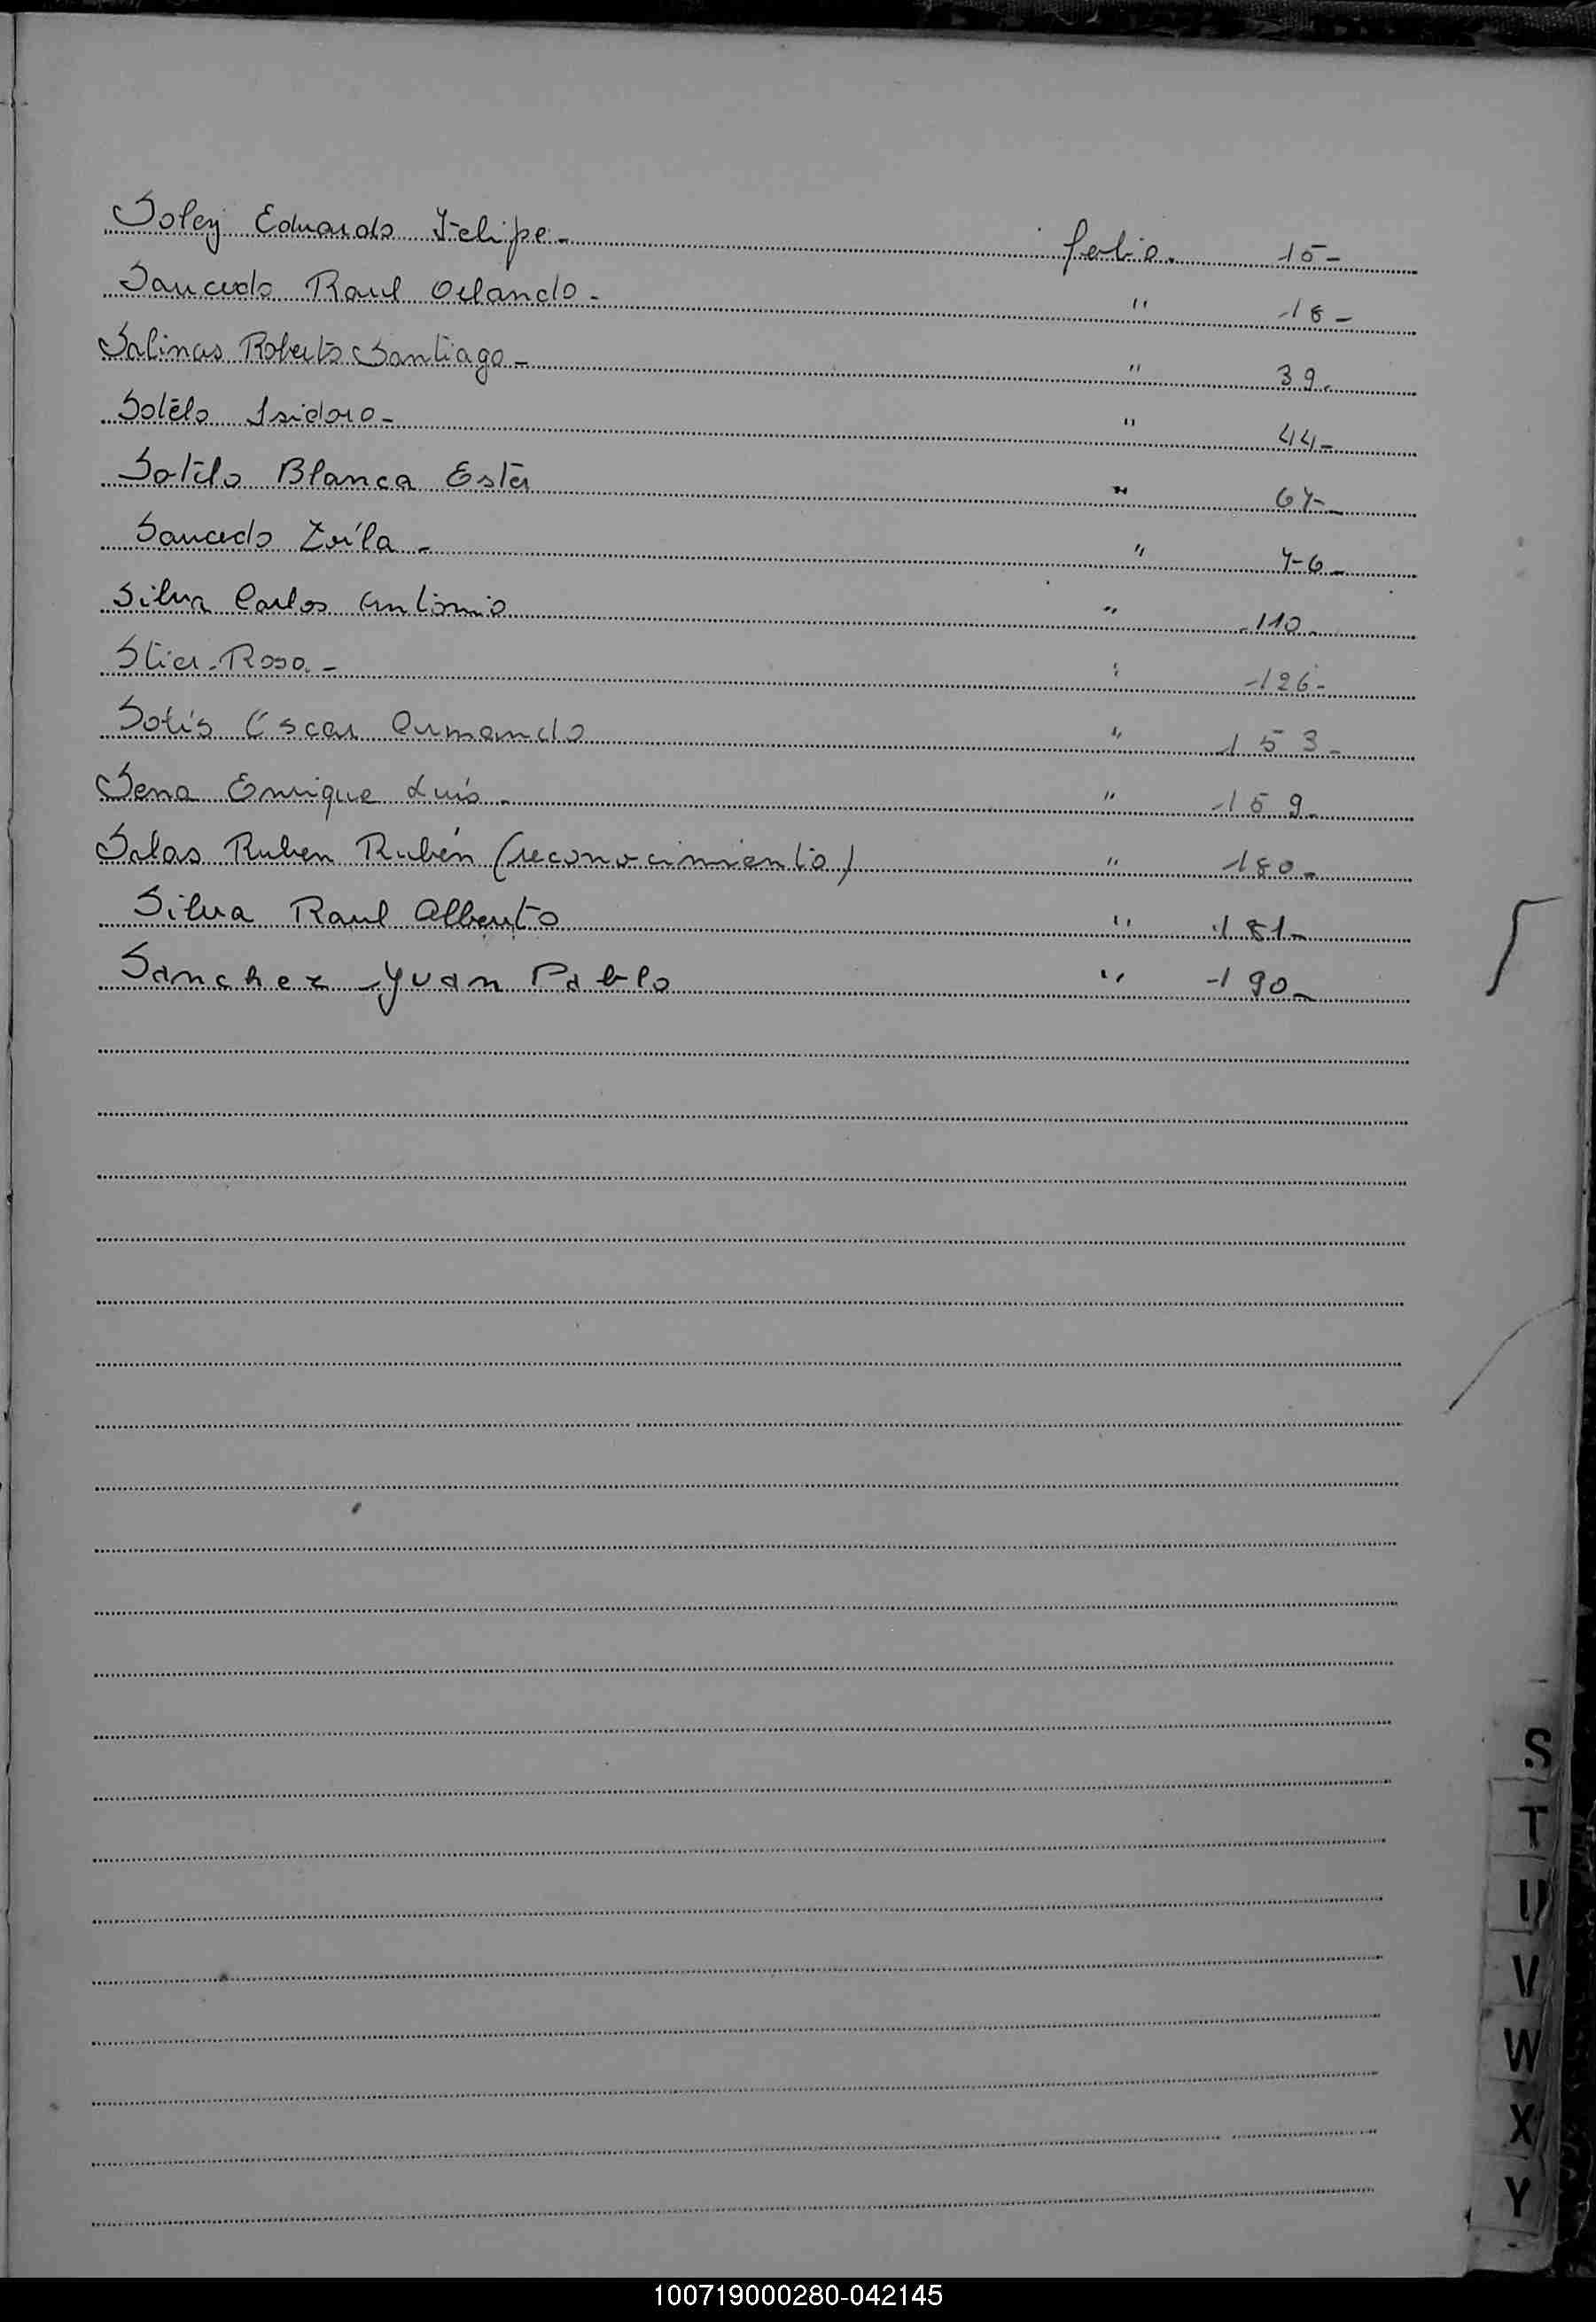 Soley Eduardo Felipe - folio. 15 -
Saucedo Raul Orlando - " 18 -
Salinas Roberto Santiago - " 39.
Sotelo Isidoro - " 44 -
Sotelo Blanca Ester " 67 -
Saucedo Zoila - " 76 -
Silva Carlos Antonio " 110 -
Stier Rosa - " 126 -
Solis Oscar Armando " 153 -
Sena Enrique Luis - " 159 -
Salas Ruben Rubén (reconocimiento) " 180 -
Silva Raul Alberto " 181 -
Sanchez Juan Pablo " 190 -
S
T
U
V
W
X
Y
100719000280-042145